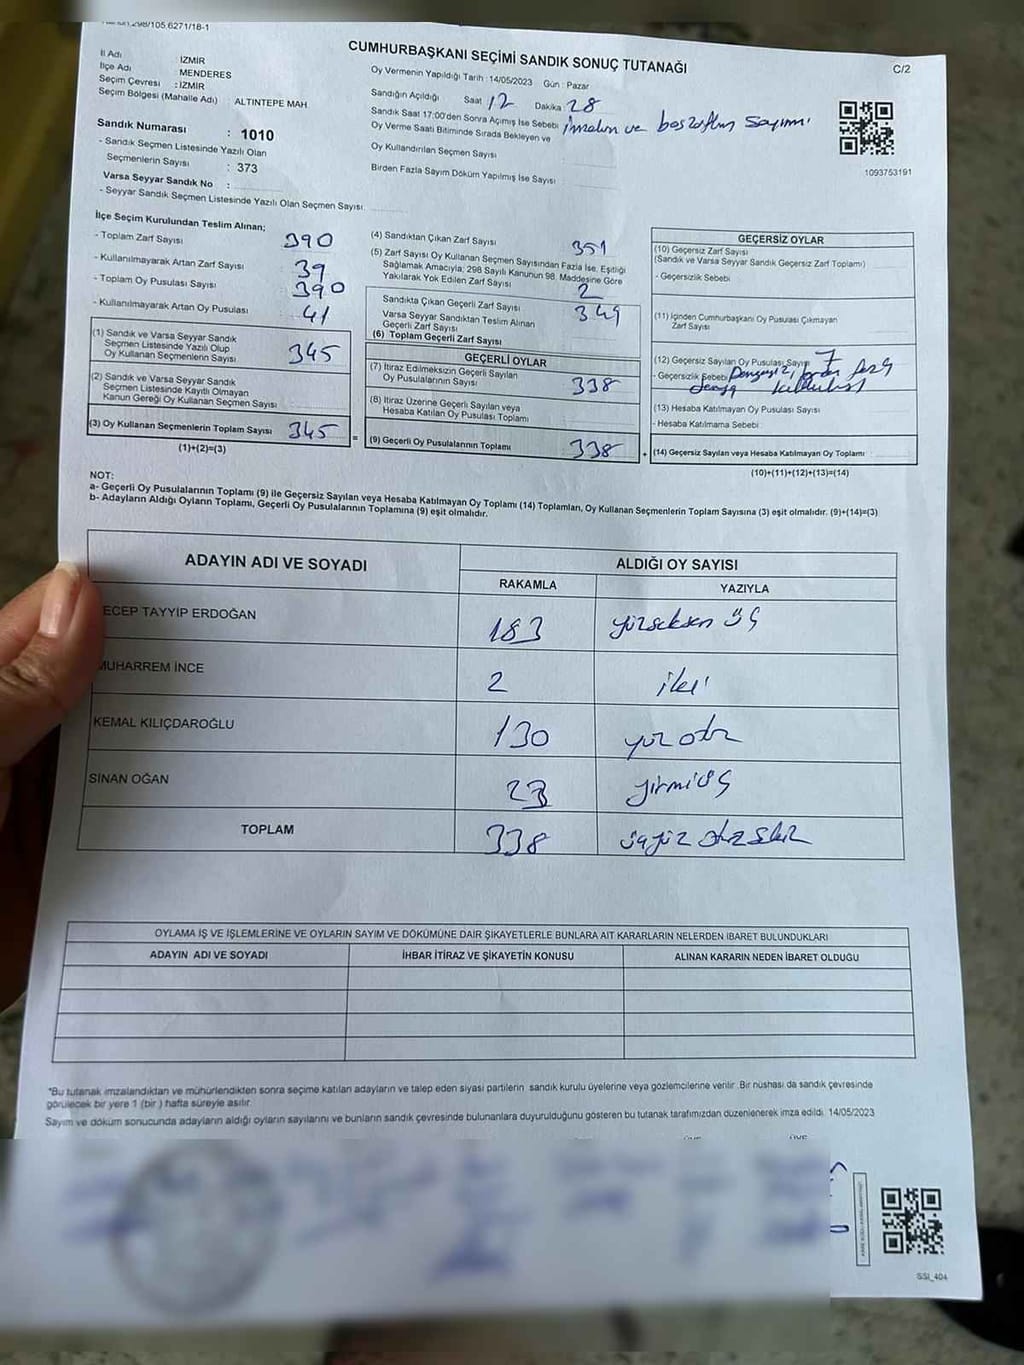 298/105,6271/18-1
CUMHURBAŞKANI SEÇİMİ SANDIK SONUÇ TUTANAĞI
C/2
İl Adı : İZMİR
İlçe Adı : MENDERES
Seçim Çevresi : İZMİR
Seçim Bölgesi (Mahalle Adı) : ALTINTEPE MAH
Sandık Numarası : 1010
- Sandık Seçmen Listesinde Yazılı Olan
Seçmenlerin Sayısı : 373
Varsa Seyyar Sandık No :
- Seyyar Sandık Seçmen Listesinde Yazılı Olan Seçmen Sayısı
Oy Vermenin Yapıldığı Tarih : 14/05/2023 Gün : Pazar
Sandığın Açıldığı Saat 12 Dakika 28
Sandık Saat 17:00'den Sonra Açımış İse Sebebi imzaların ve boş zarfların sayımı
Oy Verme Saati Bitiminde Sırada Bekleyen ve
Oy Kullandırılan Seçmen Sayısı
Birden Fazla Sayım Döküm Yapılmış İse Sayısı
1093753191
İlçe Seçim Kurulundan Teslim Alınan;
- Toplam Zarf Sayısı : 390
- Kullanılmayarak Artan Zarf Sayısı : 39
- Toplam Oy Pusulası Sayısı : 390
- Kullanılmayarak Artan Oy Pusulası : 41
(1) Sandık ve Varsa Seyyar Sandık
Seçmen Listesinde Yazılı Olup
Oy Kullanan Seçmenlerin Sayısı 345
(2) Sandık ve Varsa Seyyar Sandık
Seçmen Listesinde Kayıtlı Olmayan
Kanun Gereği Oy Kullanan Seçmen Sayısı
(3) Oy Kullanan Seçmenlerin Toplam Sayısı 345
(1)+(2)=(3)
(4) Sandıktan Çıkan Zarf Sayısı 351
(5) Zarf Sayısı Oy Kullanan Seçmen Sayısından Fazla İse, Eşitliği
Sağlamak Amacıyla; 298 Sayılı Kanunun 98. Maddesine Göre
Yakılarak Yok Edilen Zarf Sayısı 2
Sandıkta Çıkan Geçerli Zarf Sayısı 349
Varsa Seyyar Sandıktan Teslim Alınan
Geçerli Zarf Sayısı
(6) Toplam Geçerli Zarf Sayısı
GEÇERLİ OYLAR
(7) İtiraz Edilmeksizin Geçerli Sayılan
Oy Pusulalarının Sayısı 338
(8) İtiraz Üzerine Geçerli Sayılan veya
Hesaba Katılan Oy Pusulası Toplamı
(9) Geçerli Oy Pusulalarının Toplamı 338
GEÇERSİZ OYLAR
(10) Geçersiz Zarf Sayısı
(Sandık ve Varsa Seyyar Sandık Geçersiz Zarf Toplamı)
- Geçersizlik Sebebi
(11) İçinden Cumhurbaşkanı Oy Pusulası Çıkmayan
Zarf Sayısı
(12) Geçersiz Sayılan Oy Pusulası Sayısı 7
- Geçersizlik Sebebi
(13) Hesaba Katılmayan Oy Pusulası Sayısı
- Hesaba Katılmama Sebebi
(14) Geçersiz Sayılan veya Hesaba Katılmayan Oy Toplamı
(10)+(11)+(12)+(13)=(14)
NOT:
a- Geçerli Oy Pusulalarının Toplamı (9) ile Geçersiz Sayılan veya Hesaba Katılmayan Oy Toplamı (14) Toplamları, Oy Kullanan Seçmenlerin Toplam Sayısına (3) eşit olmalıdır. (9)+(14)=(3)
b- Adayların Aldığı Oyların Toplamı, Geçerli Oy Pusulalarının Toplamına (9) eşit olmalıdır.
ADAYIN ADI VE SOYADI ALDIĞI OY SAYISI
RAKAMLA YAZIYLA
ECEP TAYYİP ERDOĞAN 183 yüzseksen üç
MUHARREM İNCE 2 iki
KEMAL KILIÇDAROĞLU 130 yüz otuz
SİNAN OĞAN 23 yirmiüç
TOPLAM 338 üçyüz otuz sekiz
OYLAMA İŞ VE İŞLEMLERİNE VE OYLARIN SAYIM VE DÖKÜMÜNE DAİR ŞİKAYETLERLE BUNLARA AİT KARARLARIN NELERDEN İBARET BULUNDUKLARI
ADAYIN ADI VE SOYADI İHBAR İTİRAZ VE ŞİKAYETİN KONUSU ALINAN KARARIN NEDEN İBARET OLDUĞU
*Bu tutanak imzalandıktan ve mühürlendikten sonra seçime katılan adayların ve talep eden siyasi partilerin sandık kurulu üyelerine veya gözlemcilerine verilir. Bir nüshası da sandık çevresinde
görülecek bir yere 1 (bir ) hafta süreyle asılır.
Sayım ve döküm sonucunda adayların aldığı oyların sayılarını ve bunların sandık çevresinde bulunanlara duyurulduğunu gösteren bu tutanak tarafımızdan düzenlenerek imza edildi. 14/05/2023
SSİ_404